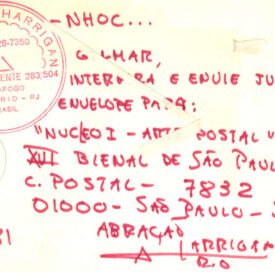 HARRIGAN
26-7350
ENTE 283,504
AFOGO
RIO - RJ
ASIL
- NHOC...
G LHAR,
INTERFIRA E ENVIE JU
ENVELOPE PARA:
"NUCLEO I - ARTE POSTAL"
XVI BIENAL DE SÃO PAUL
C. POSTAL - 7832
01000 - SÃO PAULO - S
ABRAÇÃO
HARRIGAN
RIO
81